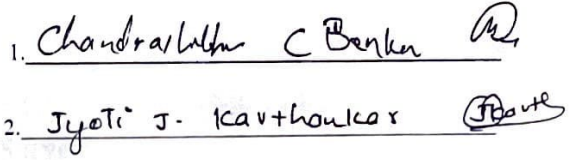 1. Chandrashekhar C Benkar
2. Jyoti J. Kavthankar